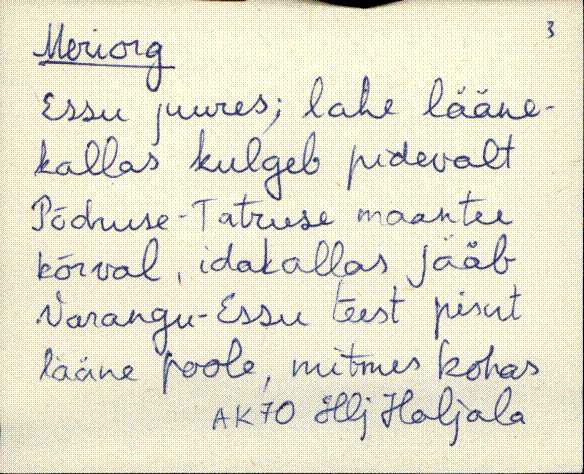 3
Meriorg
Essu juures; lahe lääne-
kallas kulgeb pidevalt
Põdruse-Tatruse maantee
kõrval, idakallas jääb
Varangu-Essu teest pisut
lääne poole, mitmes kohas
AK70 Hlj Haljala